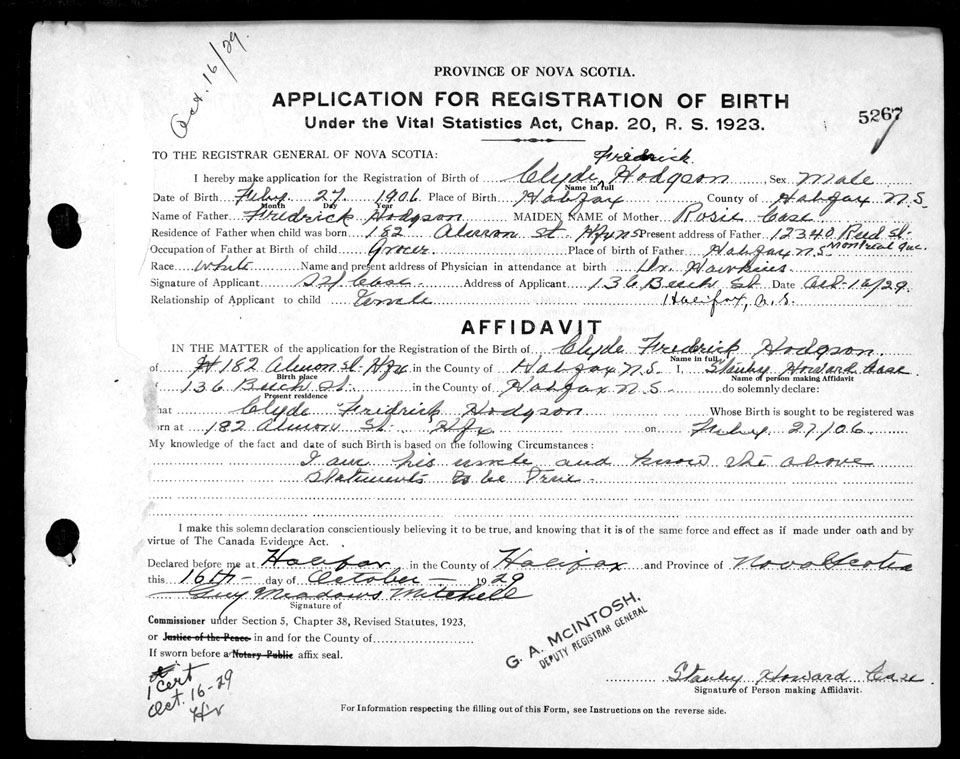 Oct. 16/29.
PROVINCE OF NOVA SCOTIA.
APPLICATION FOR REGISTRATION OF BIRTH
Under the Vital Statistics Act, Chap. 20, R. S. 1923.
5267
TO THE REGISTRAR GENERAL OF NOVA SCOTIA:
Fredrick
I hereby make application for the Registration of Birth of Clyde Hodgson Sex Male
Name in full
Date of Birth Feby. 27 1906 Place of Birth Halifax County of Halifax N.S.
Month Day Year
Name of Father Fredrick Hodgson MAIDEN NAME of Mother Rosie Case
Residence of Father when child was born 182 Almon St. Hfx N.S. Present address of Father 12340 Reed St.
Montreal Que.
Occupation of Father at Birth of child Grocer Place of birth of Father Halifax N.S.
Race White Name and present address of Physician in attendance at birth Dr. Hawkins
Signature of Applicant S H Case Address of Applicant 136 Beech St Oct-16/29
Relationship of Applicant to child Uncle Halifax, N.S.
AFFIDAVIT
IN THE MATTER of the application for the Registration of the Birth of Clyde Fredrick Hodgson
Name in full
of 182 Almon St. Hfx in the County of Halifax N.S. I, Stanley Howard Case
Birth place Name of person making Affidavit
f 136 Beech St. in the County of Halifax N.S. do solemnly declare:
Present residence
hat Clyde Fridrick Hodgson Whose Birth is sought to be registered was
orn at 182 Almon St. Hfx on Feby. 27.06.
My knowledge of the fact and date of such Birth is based on the following Circumstances:
I am his uncle and know the above
Statements to be True.
I make this solemn declaration conscientiously believing it to be true, and knowing that it is of the same force and effect as if made under oath and by
virtue of The Canada Evidence Act.
Declared before me at Halifax in the County of Halifax and Province of Nova Scotia
this 16th day of October 1929
Guy Meadows Mitchell
Signature of
Commissioner under Section 5, Chapter 38, Revised Statutes, 1923,
or Justice of the Peace in and for the County of
If sworn before a Notary Public affix seal.
G. A. MCINTOSH,
DEPUTY REGISTRAR GENERAL
1 Cert
Oct. 16-29
Stanley Howard Case
Signature of Person making Affidavit.
For Information respecting the filling out of this Form, see Instructions on the reverse side.